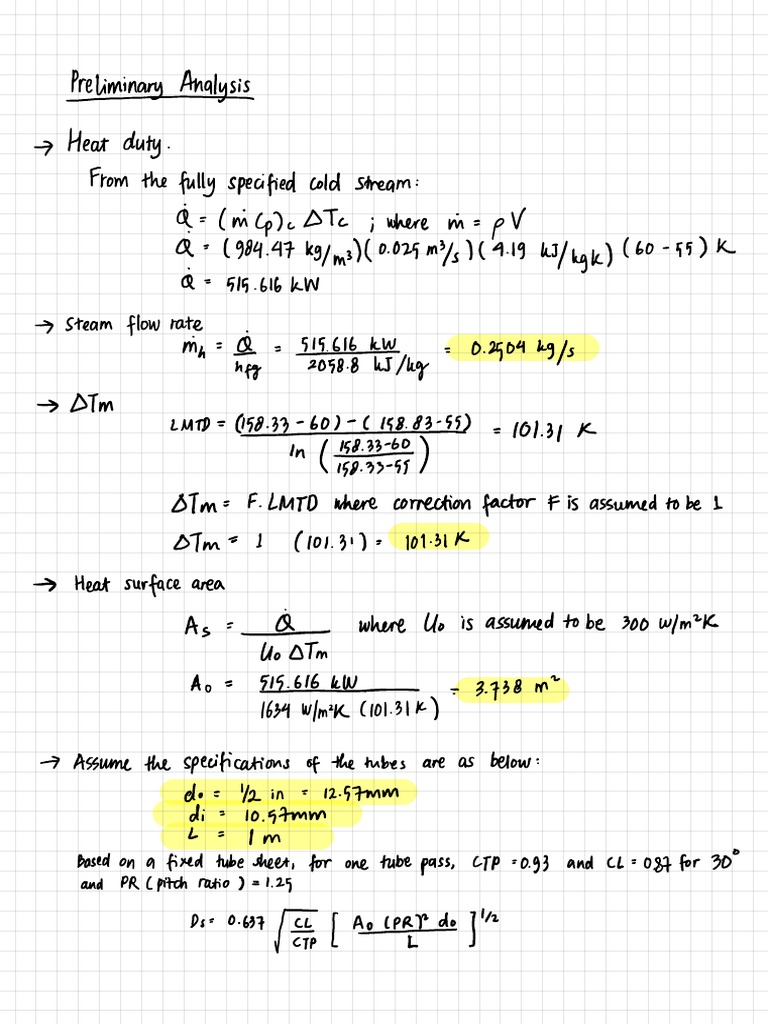 Preliminary Analysis
→ Heat duty.
From the fully specified cold stream:
Q̇ = (ṁ Cp)c ΔTc ; where ṁ = ρV
Q̇ = (984.47 kg/m³)(0.025 m³/s)(4.19 kJ/kgK)(60-55) K
Q̇ = 515.616 kW
→ Steam flow rate
ṁh = Q̇/hfg = 515.616 kW / 2058.8 kJ/kg = 0.2504 kg/s
→ ΔTm
LMTD = (158.33-60)-(158.83-55) / ln (158.33-60 / 158.33-55) = 101.31 K
ΔTm = F. LMTD where correction factor F is assumed to be 1
ΔTm = 1 (101.31) = 101.31 K
→ Heat surface area
As = Q̇ / Uo ΔTm where Uo is assumed to be 300 W/m²K
Ao = 515.616 kW / 1634 W/m²K (101.31 K) = 3.738 m²
→ Assume the specifications of the tubes are as below:
do = 1/2 in = 12.57mm
di = 10.57mm
L = 1 m
Based on a fixed tube sheet, for one tube pass, CTP = 0.93 and CL = 0.87 for 30°
and PR (pitch ratio) = 1.25
Ds = 0.637 √(CL/CTP) [Ao (PR)² do / L]^1/2